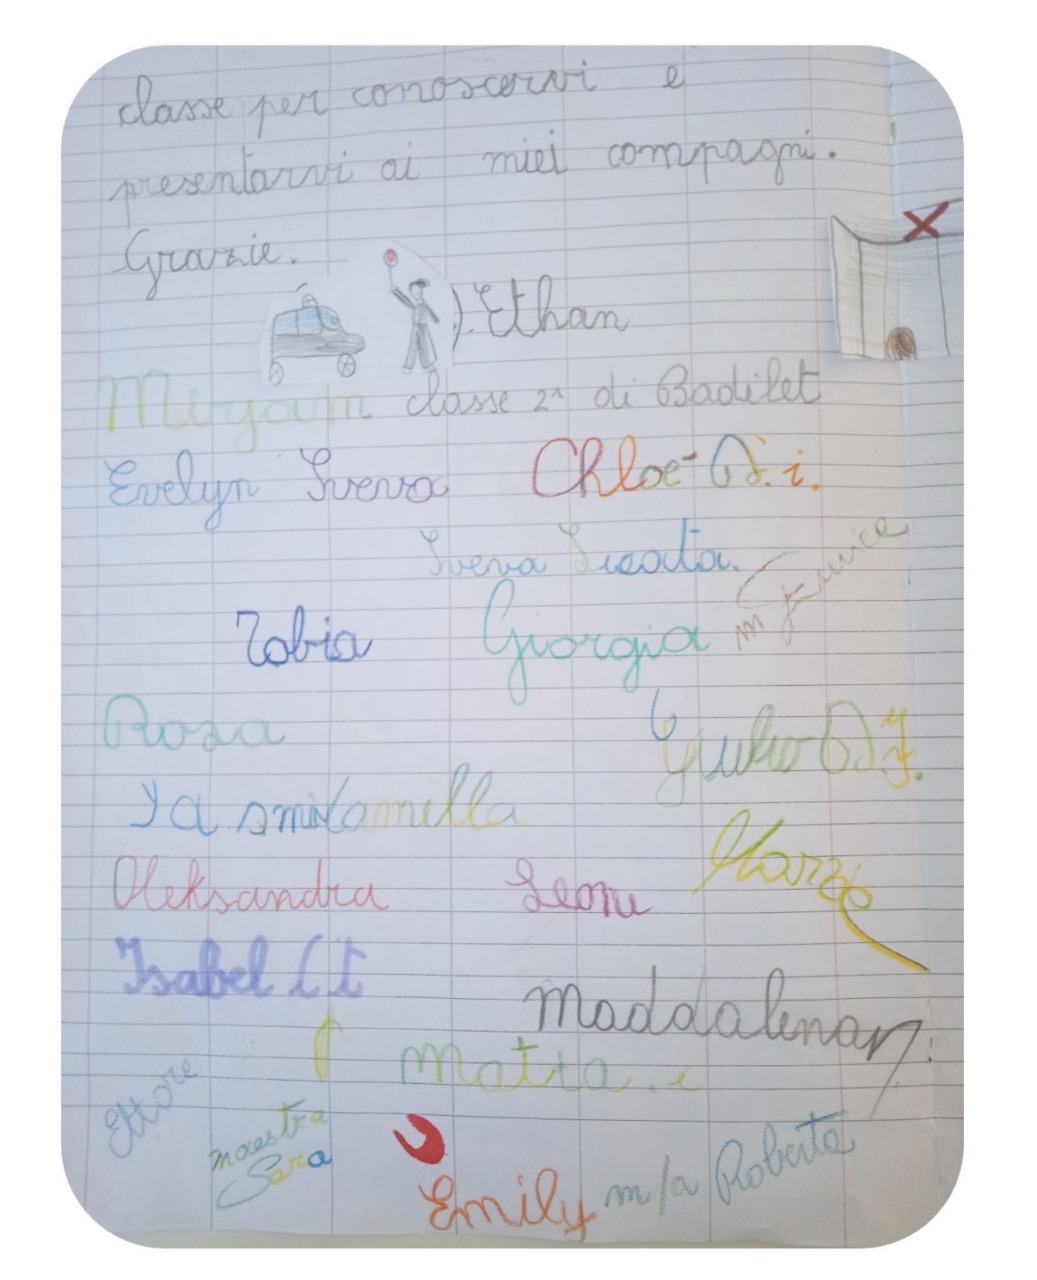 classe per conoscervi e
presentarvi ai miei compagni.
Grazie.
Ethan
Miryam classe 2ª di Badilet
Evelyn Sveva Chloe D. i.
Sveva Licata.
Tobia Giorgia m.
Rosa
Giulio D.
Yasmin Camilla
Oleksandra Leone Marzio
Isabel
Maddalena
Mattia
Ettore
maestra
Sara
Emily m/a Roberta